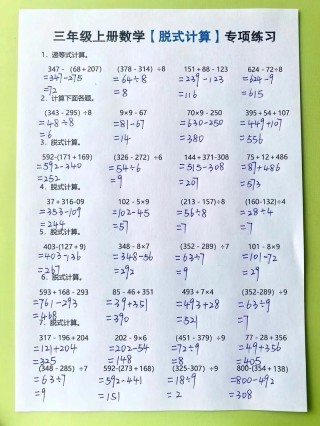 三年级上册数学【脱式计算】专项练习
1、递等式计算。
347 - (68+207) (378 - 314) ÷8 151 + 88 - 123 624 - 72÷8
=347-275 =64÷8 =239-123 =624-9
=72 =8 =116 =615
2、计算下面各题。
(343 - 295) ÷8 9×9 - 67 70×9 - 250 395 + 54 + 107
=48÷8 =81-67 =630-250 =449+107
=6 =14 =380 =556
3、脱式计算。
592-(171+169) (326 - 272) ÷6 144+371-308 75 + 12 + 486
=592-340 =54÷6 =515-308 =87+486
=252 =9 =207 =573
4、脱式计算。
37 + 316-09 102 - 5×9 (213 - 157)÷8 (160-132)÷4
=353-109 =102-45 =56÷8 =28÷4
=244 =57 =7 =7
5、脱式计算。
403-(127+9) 348 - 8×7 (352 - 289) ÷7 101 - 8×9
=403-136 =348-56 =63÷7 =101-72
=267 =292 =9 =29
6、脱式计算。
593 + 168 - 293 85 - 46 + 351 493 + 7×4 (352-289) ÷9
=761-293 =39+351 =493+28 =63÷9
=468 =390 =521 =7
7、脱式计算。
317 - 196 + 204 202 - 9×6 (451 - 379) ÷9 77 - 28 + 356
=121+204 =202-54 =72÷9 =49+356
=325 =148 =8 =405
(348 - 285) ÷7 592-(273+168) (325-307) ÷9 800-(354+138)
=63÷7 =592-441 =18÷9 =800-492
=9 =151 =2 =308